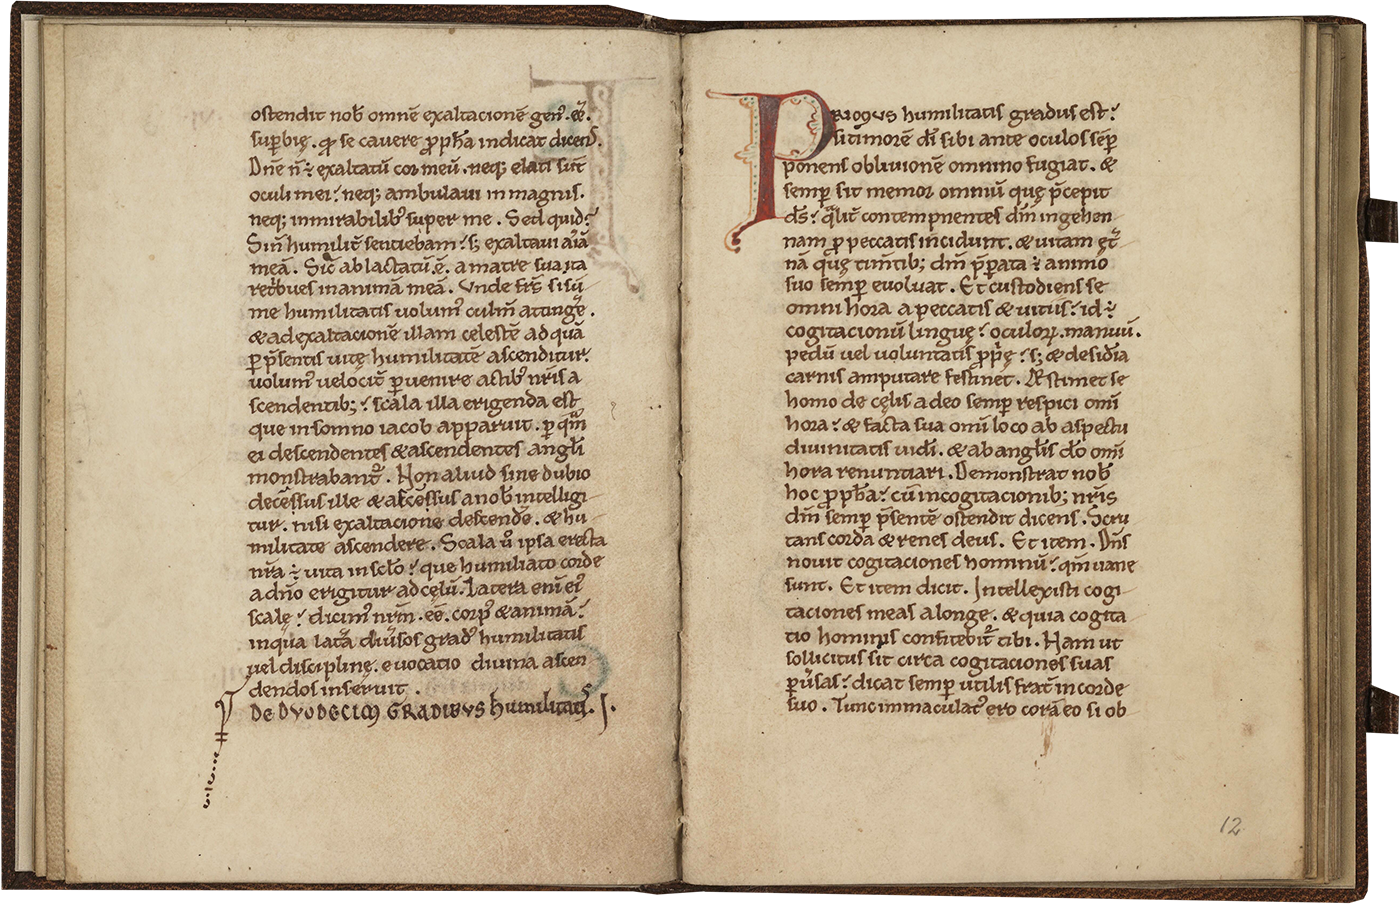 ostendit nob̄ omnē exaltacionē gen͛ . eē͛.
sup̱bię . qđ se cavere ꝓph̄a indicat dicens̄ .
Dn̄e n̄ ÷ exaltatū cor meū . neq; elati sūt
oculi mei ? neq; ambulavi in magnis .
neq; in mirabilib᾽ super me . Sed quid ?
Sin̄ humilit̄ sentiebam ? s; exaltavi aīā
meā . Sic̄ ablactatū . ē . a matre sua ita
ret᷑bues in animā meā . Unde fr̄s si sū
me humilitatis volum᾽ culm̄ attinge͛ .
& ad exaltacionē illam celestē ad quā
ꝑ p̄sentis vitę humilitatē ascenditur ?
volum᾽ velocit̄ ꝑvenire actib᾽ nr̄is a
scendentib; ? scala illa erigenda est
que in somno iacob apparuit . ꝑ quā
ei descendentes & ascendentes anglī
monstrabant᷑ . Non aliud sine dubio
decessus ille & accessus a nob̄ intelligi
tur . nisi exaltacione descende͛ . & hu
militate ascendere . Scala u̇ ipsa erecta
nr̄a ÷ vita in scl̄o ? que humiliato corde
a dn̄o erigitur ad cęlū . Latera enī ei᾽
scalę ? dicim᾽ nr̄m . eē . corp᾽ & animā ?
in qua lat͛a div͛sos grad᾽ humilitatis
vel disciplinę . evocatio divina ascen
dendos inseruit .
De DVODECIM GRADIBVS humilitatis . I .
PRIMVS humilitatis gradus est ?
si timorē dī sibi ante oculos semp̱
ponens oblivionē omnino fugiat . &
semp̱ sit memor omniū quę p̄cepit
ds̄ ? qualit̄ contempnentes dm̄ in gehen
nam ꝓ peccatis incidunt . & vitam et͛
nā quę timtib̄; dm̄ p̄parata ÷ animo
suo semp̱ evoluat . Et custodiens se
omni hora a peccatis & vitiis ? id ÷
cogitacionū linguę ? oculoꝝ . manuū .
pedū vel voluntatis ꝓprię ? s; & desidīa
carnis amputare festinet . Æstimet se
homo de cęlis a deo semp̱ respici om̄i
hora ? & facta sua om̄i loco ab aspectu
divinitatis vidi̅ . & ab angli̅s dō om̄i
hora renuntiari . Demonstrat nob̄
hoc ꝓph̄a ? cū in cogitacionib; nr̄is
dm̄ semp̱ p̄sentē ostendit dicens . Scru
tans corda & renes deus . Et item . Dn̄s
novit cogitaciones hominū ? qm̄ vane
sunt . Et item dicit . Intellexisti cogi
taciones meas a longe . & quia cogita
tio hominis confitebit᷑ tibi . Nam ut
sollicitus sit circa cogitaciones suas
ꝑv͛sas ? dicat semp̱ utilis frat̄ in corde
suo . Tunc immaculat᾽ ero corā eo si ob
12